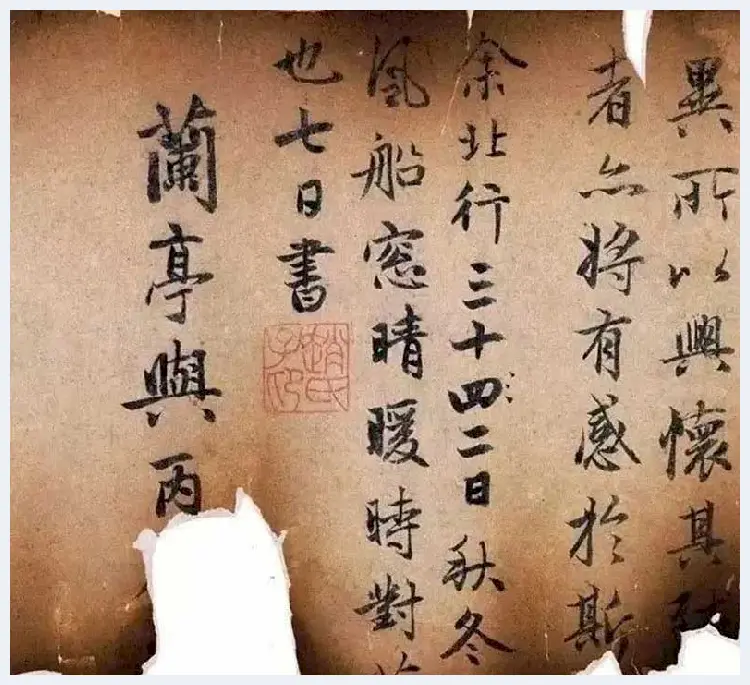 異所以興懷其致
者亦將有感於斯
余北行三十四二日秋冬
風船窓晴暖時對
也七日書
趙氏子印
蘭亭與丙